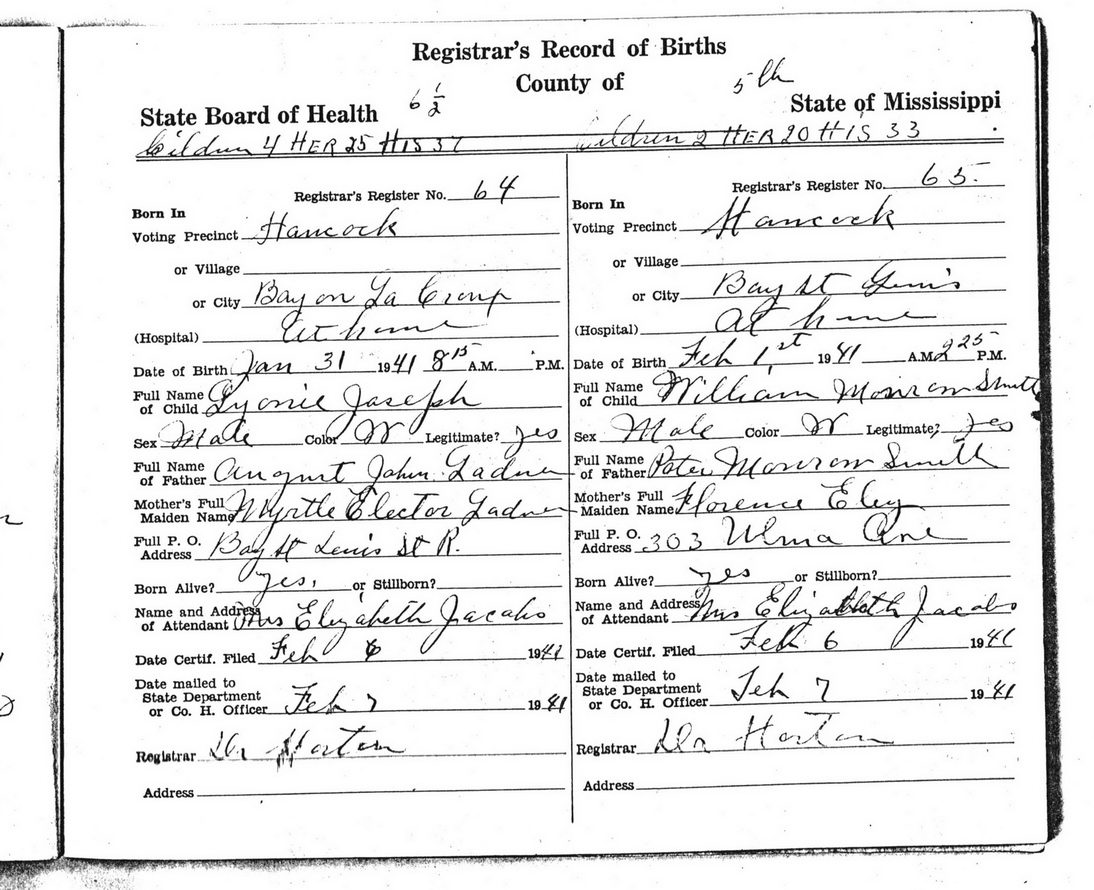 Registrar's Record of Births
County of
State Board of Health 6 1/2 5 lh State of Mississippi
Cildren 4 HER 25 HIS 37
Cildren 2 HER 20 HIS 33
Registrar's Register No. 64
Born In
Voting Precinct Hancock
or Village
or City Bay on La Croup
(Hospital) At home
Date of Birth Jan 31 1941 8 15 A.M. P.M.
Full Name of Child Lyonie Joseph
Sex Male Color W Legitimate? yes
Full Name of Father August John Ladner
Mother's Full Maiden Name Myrtle Elector Ladner
Full P. O. Address Bay St Louis St R.
Born Alive? yes, or Stillborn?
Name and Address of Attendant Mrs Elizabeth Jacobs
Date Certif. Filed Feb 6 1941
Date mailed to
State Department
or Co. H. Officer Feb 7 1941
Registrar Dr Horton
Address
Registrar's Register No. 65
Born In
Voting Precinct Hancock
or Village
or City Bay St Louis
(Hospital) At home
Date of Birth Feb 1st 1941 A.M. 2 25 P.M.
Full Name of Child William Monrow Smith
Sex Male Color W Legitimate? yes
Full Name of Father Peter Monrow Smith
Mother's Full Maiden Name Florence Eley
Full P. O. Address 303 Ulma Ave
Born Alive? yes or Stillborn?
Name and Address of Attendant Mrs Elizabeth Jacobs
Date Certif. Filed Feb 6 1941
Date mailed to
State Department
or Co. H. Officer Feb 7 1941
Registrar Dr Horton
Address